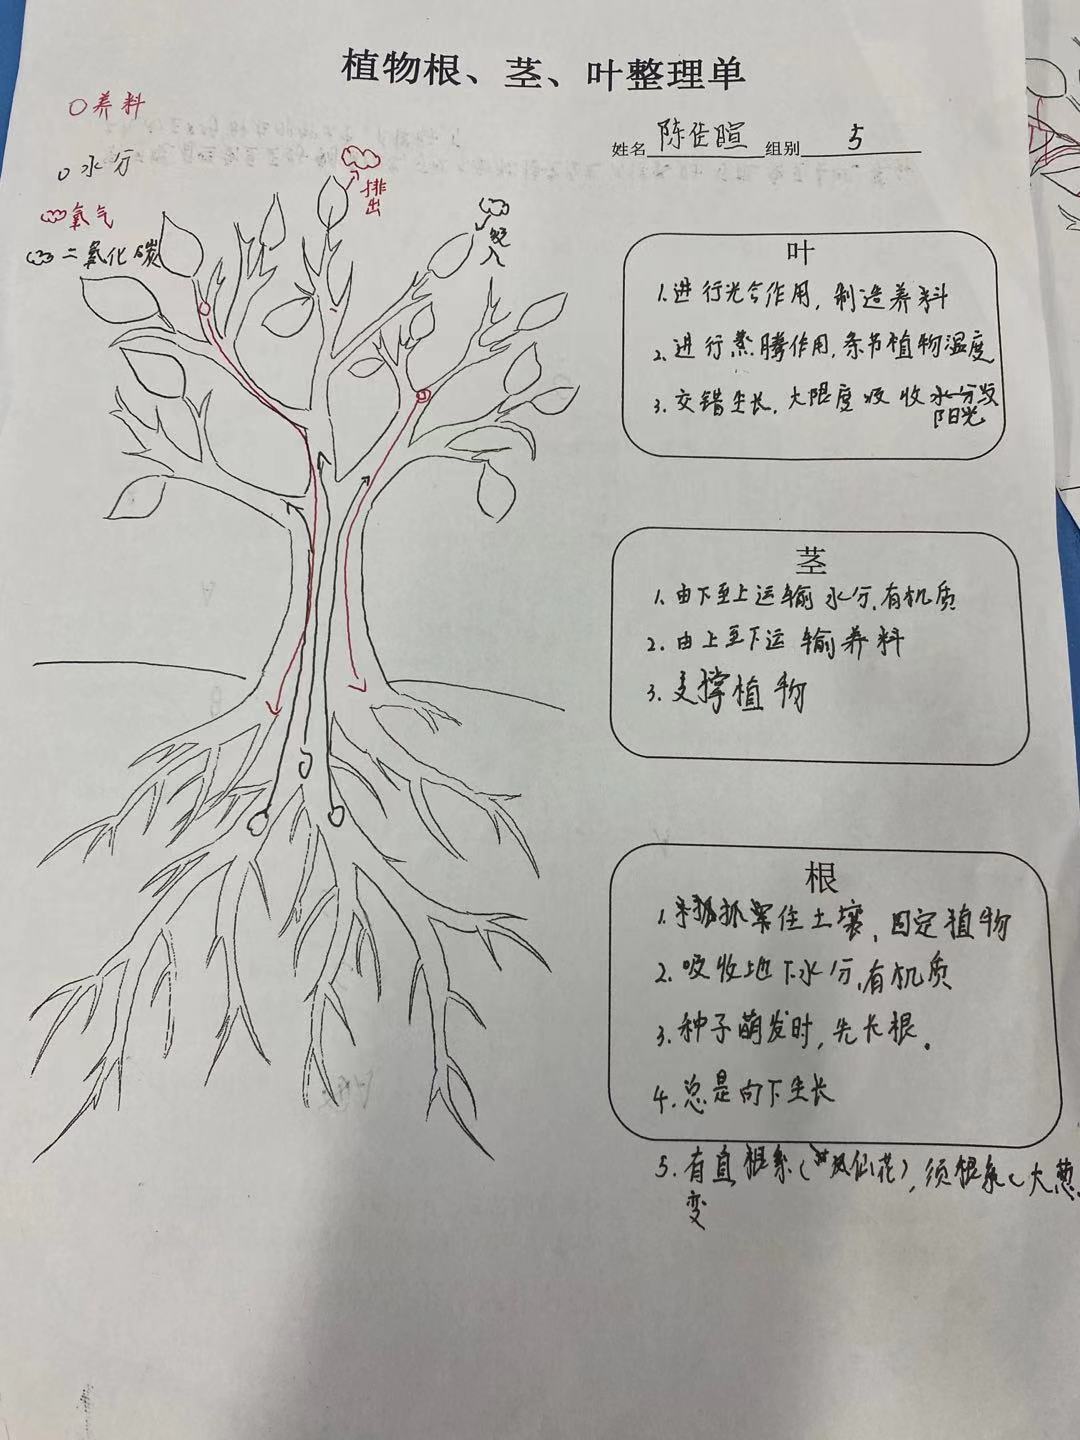 植物根、茎、叶整理单
养料
水分
氧气
二氧化碳
排出
吸入
姓名 陈 暄 组别 5
叶
1.进行光合作用,制造养料
2.进行蒸腾作用,条节植物温度
3.交错生长,大限度吸收水分及
阳光
茎
1.由下至上运输水分,有机质
2.由上至下运输养料
3.支撑植物
根
1.抓紧住土壤,固定植物
2.吸收地下水分,有机质
3.种子萌发时,先长根。
4.总是向下生长
5.有直根系(凤仙花),须根系(大葱